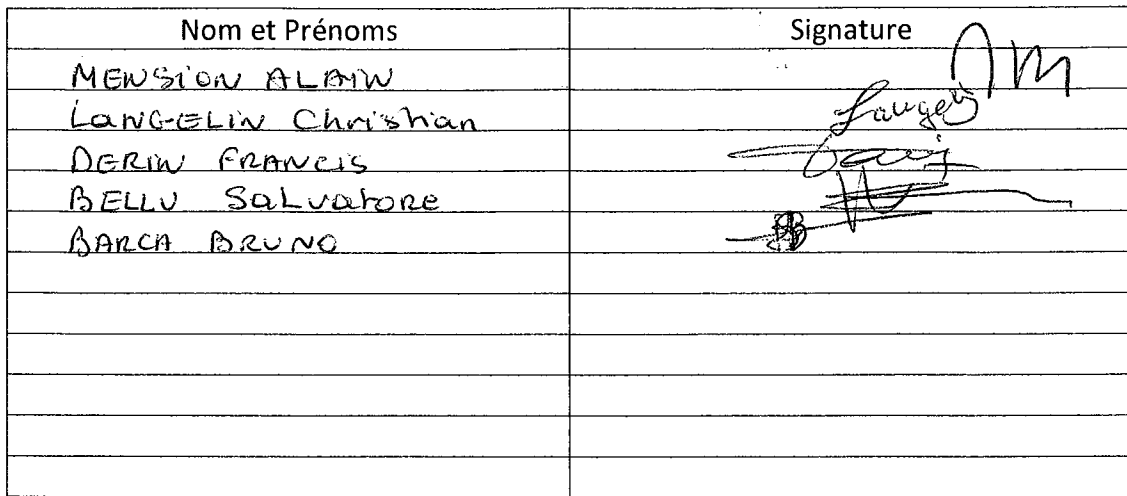 Nom et Prénoms Signature
MENSION ALAIN
LANGELIN Christian
DERIN FRANCIS
BELLU SaLvatore
BARCA BRUNO